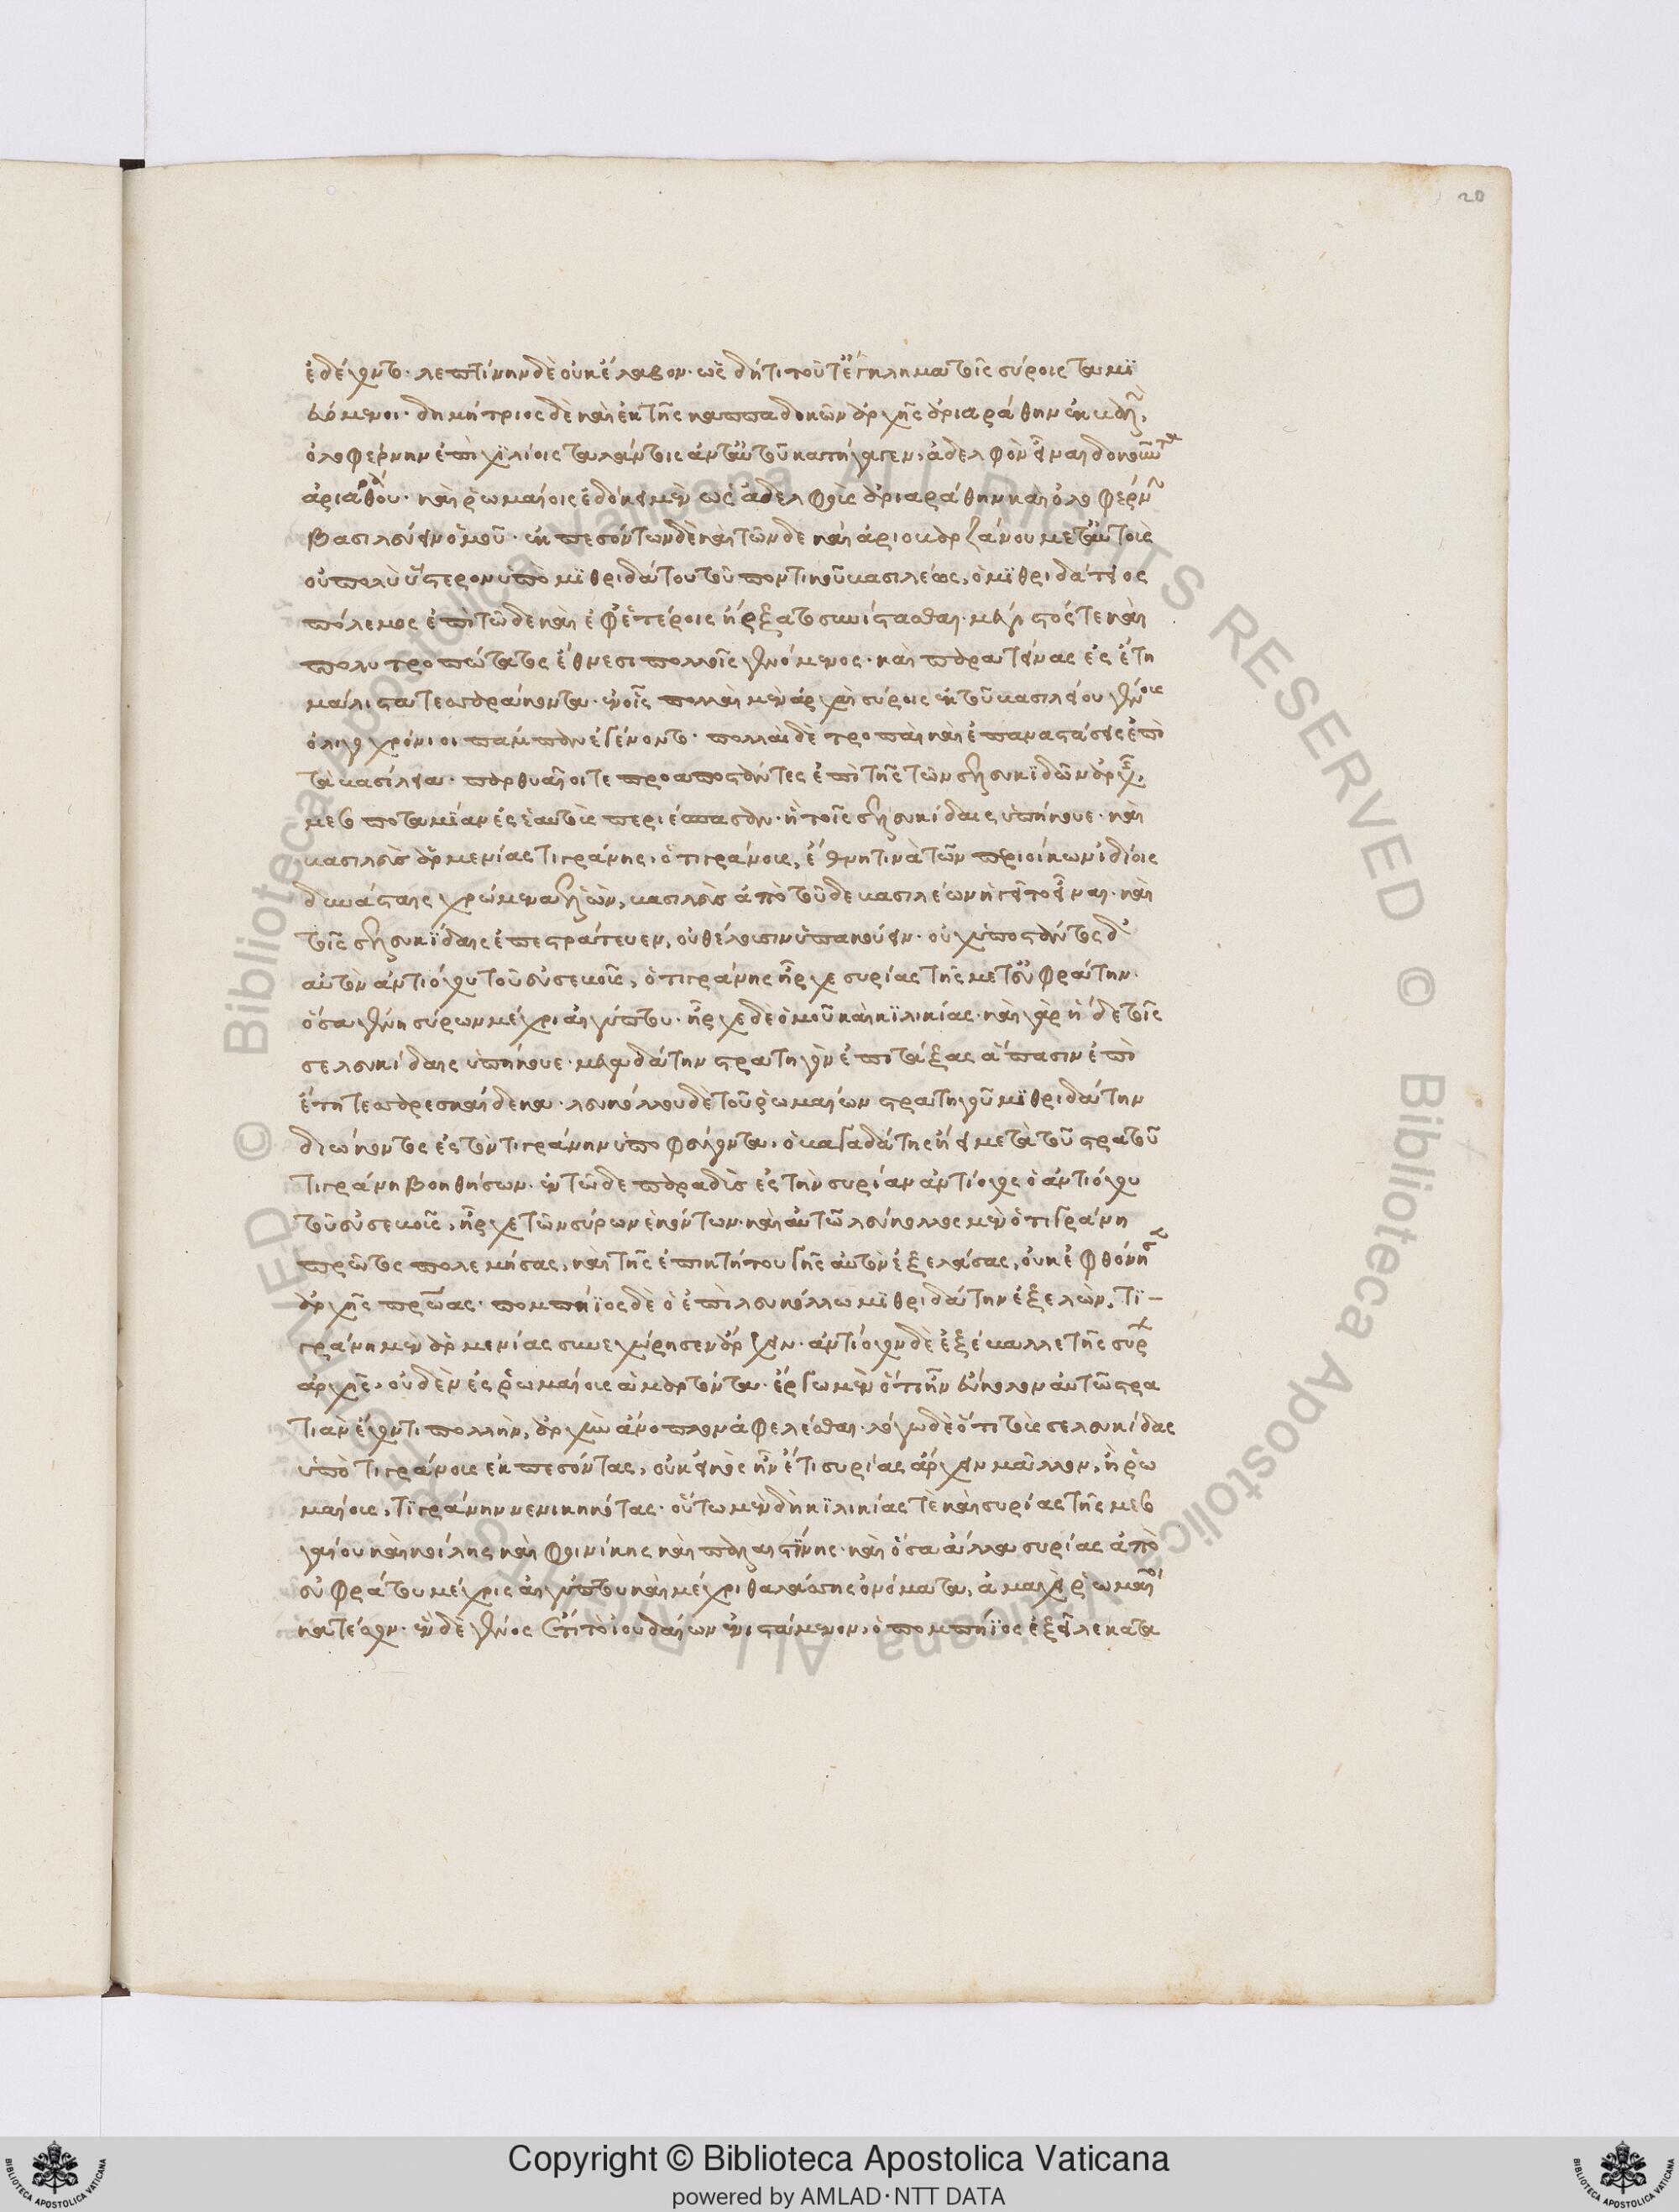 20
ἐδέχοντο· λεπτίνην δὲ οὐκ ἔλαβον· ὡς δή τι τοῦτ' ἔγκλημα τοῖς σύροις ταμι
ευόμενοι· δημήτριος δὲ καὶ ἐκ τῆς καππαδοκῶν ἀρχῆς ἀριαράθην ἐκβαλὼν,
ὀλοφέρνην ἐπὶ χιλίοις ταλάντοις ἀντ' αὐτοῦ κατήγαγεν, ἀδελφὸν εἶναι δοκοῦντα
ἀριαράθου· καὶ ῥωμαίοις ἐδόκει μὲν ὡς ἀδελφοὺς ἀριαράθην καὶ ὀλοφέρνην
βασιλεύειν ὁμοῦ· ἐκπεσόντων δὲ καὶ τῶνδε καὶ ἀριοβαρζάνου μετ' αὐτοὺς
οὐ πολὺ ὕστερον ὑπὸ μιθριδάτου τοῦ ποντικοῦ βασιλέως, ὁ μιθριδάτειος
πόλεμος ἐπὶ τῶδε καὶ ἐφ' ἑτέροις ἤρξατο συνίστασθαι· μέγιστός τε καὶ
πολυτροπώτατος ἔθνεσι πολλοῖς γενόμενος· καὶ παρατείνας ἐς ἔτη
μάλιστα τεσσαράκοντα· ἐν οἷς πολλαὶ μὲν ἀρχαὶ σύροις ἐκ τοῦ βασιλείου γένους
ὀλιγοχρόνιοι πάμπαν ἐγένοντο· πολλαὶ δὲ τροπαὶ καὶ ἐπαναστάσεις ἐπὶ
τὰ βασίλεια· παρθυαῖοί τε προαποστάντες ἐπὶ τῆς τῶν σελευκιδῶν ἀρχῆς,
μεσοποταμίαν ἐς ἑαυτοὺς περιέσπασαν· ἣ τοῖς σελευκίδαις ὑπήκουε· καὶ
βασιλεὺς ἀρμενίας τιγράνης, ὁ τιγράνους, ἔθνη τινὰ τῶν περιοίκων ἰδίοις
δυνάσταις χρώμενα ἑλὼν, βασιλεὺς ἀπὸ τοῦδε βασιλέων ἡγεῖτο εἶναι· καὶ
τοῖς σελευκίδαις ἐπεστράτευεν, οὐ θέλουσιν ὑπακούειν· οὐχ ὑποστάντος δ'
αὐτὸν ἀντιόχου τοῦ εὐσεβοῦς, ὁ τιγράνης ἦρχε συρίας τῆς μετ' εὐφράτην·
ὅσα γένη σύρων μέχρι αἰγύπτου· ἦρχε δὲ ὁμοῦ καὶ κιλικίας· καὶ γὰρ ἥδε τοῖς
σελευκίδαις ὑπήκουε· μαγαδάτην στρατηγὸν ἐπιτάξας ἅπασιν ἐπὶ
ἔτη τεσσαρεσκαίδεκα· λευκόλλου δὲ τοῦ ῥωμαίων στρατηγοῦ μιθριδάτην
διώκοντος ἐς τὸν τιγράνην ὑποφεύγοντα, ὁ μαγαδάτης ᾔει μετὰ τοῦ στρατοῦ
τιγράνη βοηθήσων· ἐν τῶδε παραδὺς ἐς τὴν συρίαν ἀντίοχος ὁ ἀντιόχου
τοῦ εὐσεβοῦς, ἦρχε τῶν σύρων ἑκόντων· καὶ αὐτῶ λεύκολλος μὲν ὁ τιγράνη
πρῶτος πολεμήσας, καὶ τῆς ἐπικτήτου γῆς αὐτὸν ἐξελάσας, οὐκ ἐφθόνησε
ἀρχῆς πρώας· πομπήϊος δὲ ὁ ἐπὶ λευκόλλω μιθριδάτην ἐξελὼν, τι-
γράνη μὲν ἀρμενίας συνεχώρησεν ἄρχειν· ἀντίοχον δὲ ἐξέβαλλε τῆς σύρων
ἀρχῆς, οὐδὲν ἐς ῥωμαίους ἁμαρτόντα· ἔργω μὲν ὅτι ἦν εὔκολον αὐτῶ στρα
τιὰν ἔχοντι πολλὴν, ἀρχὴν ἄνοπλον ἀφελέσθαι· λόγω δὲ ὅτι τοὺς σελευκίδας
ὑπὸ τιγράνους ἐκπεσόντας, οὐκ εἰκὸς ἦν ἔτι συρίας ἄρχειν μᾶλλον, ἢ ῥω
μαίους, τιγράνην νενικηκότας· οὕτω μὲν δὴ κιλικίας τὲ καὶ συρίας τῆς μεσο
γαίου καὶ κοίλης καὶ φοινίκης καὶ παλαιστίνης· καὶ ὅσα ἄλλα συρίας ἀπὸ
εὐφράτου μέχρις αἰγύπτου καὶ μέχρι θαλάσσης ὀνόματα, ἀμαχεὶ ῥωμαῖοι
κατέσχον· ἓν δὲ γένος ἔτι τὸ ἰουδαίων ἐνιστάμενον, ὁ πομπήϊος ἐξεῖλε κατὰ
Copyright © Biblioteca Apostolica Vaticana
powered by AMLAD·NTT DATA